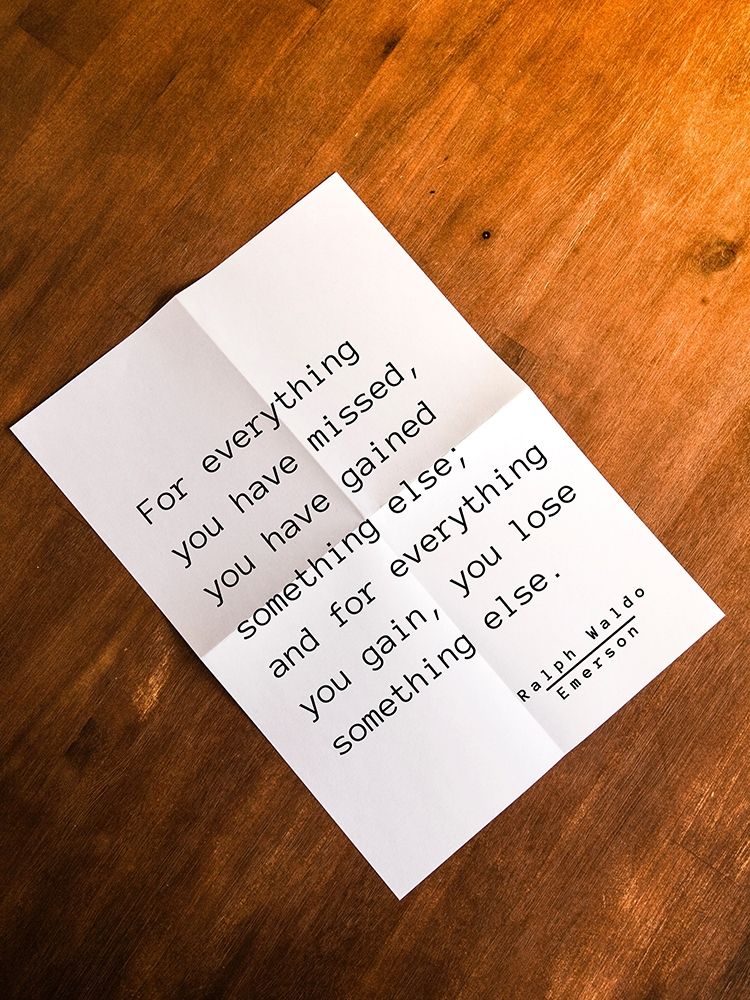 For everything
you have missed,
you have gained
something else;
and for everything
you gain, you lose
something else.
Ralph Waldo
Emerson